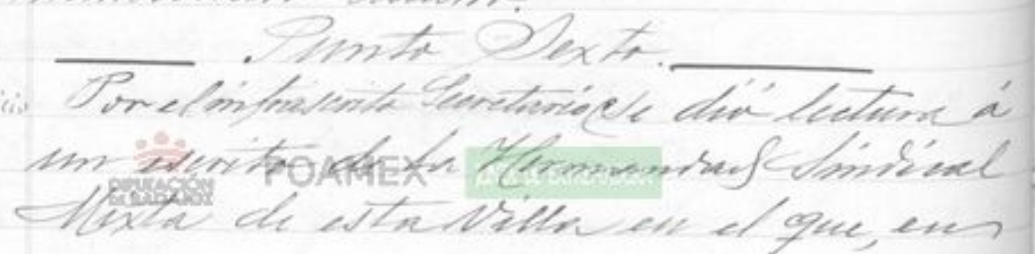 Punto Sexto.
Por el infrascrito Secretario se dió lectura á
un escrito de la Hermandad Sindical
Mixta de esta Villa en el que, en
DIPUTACIÓN
DE BADAJOZ
FOAMEX